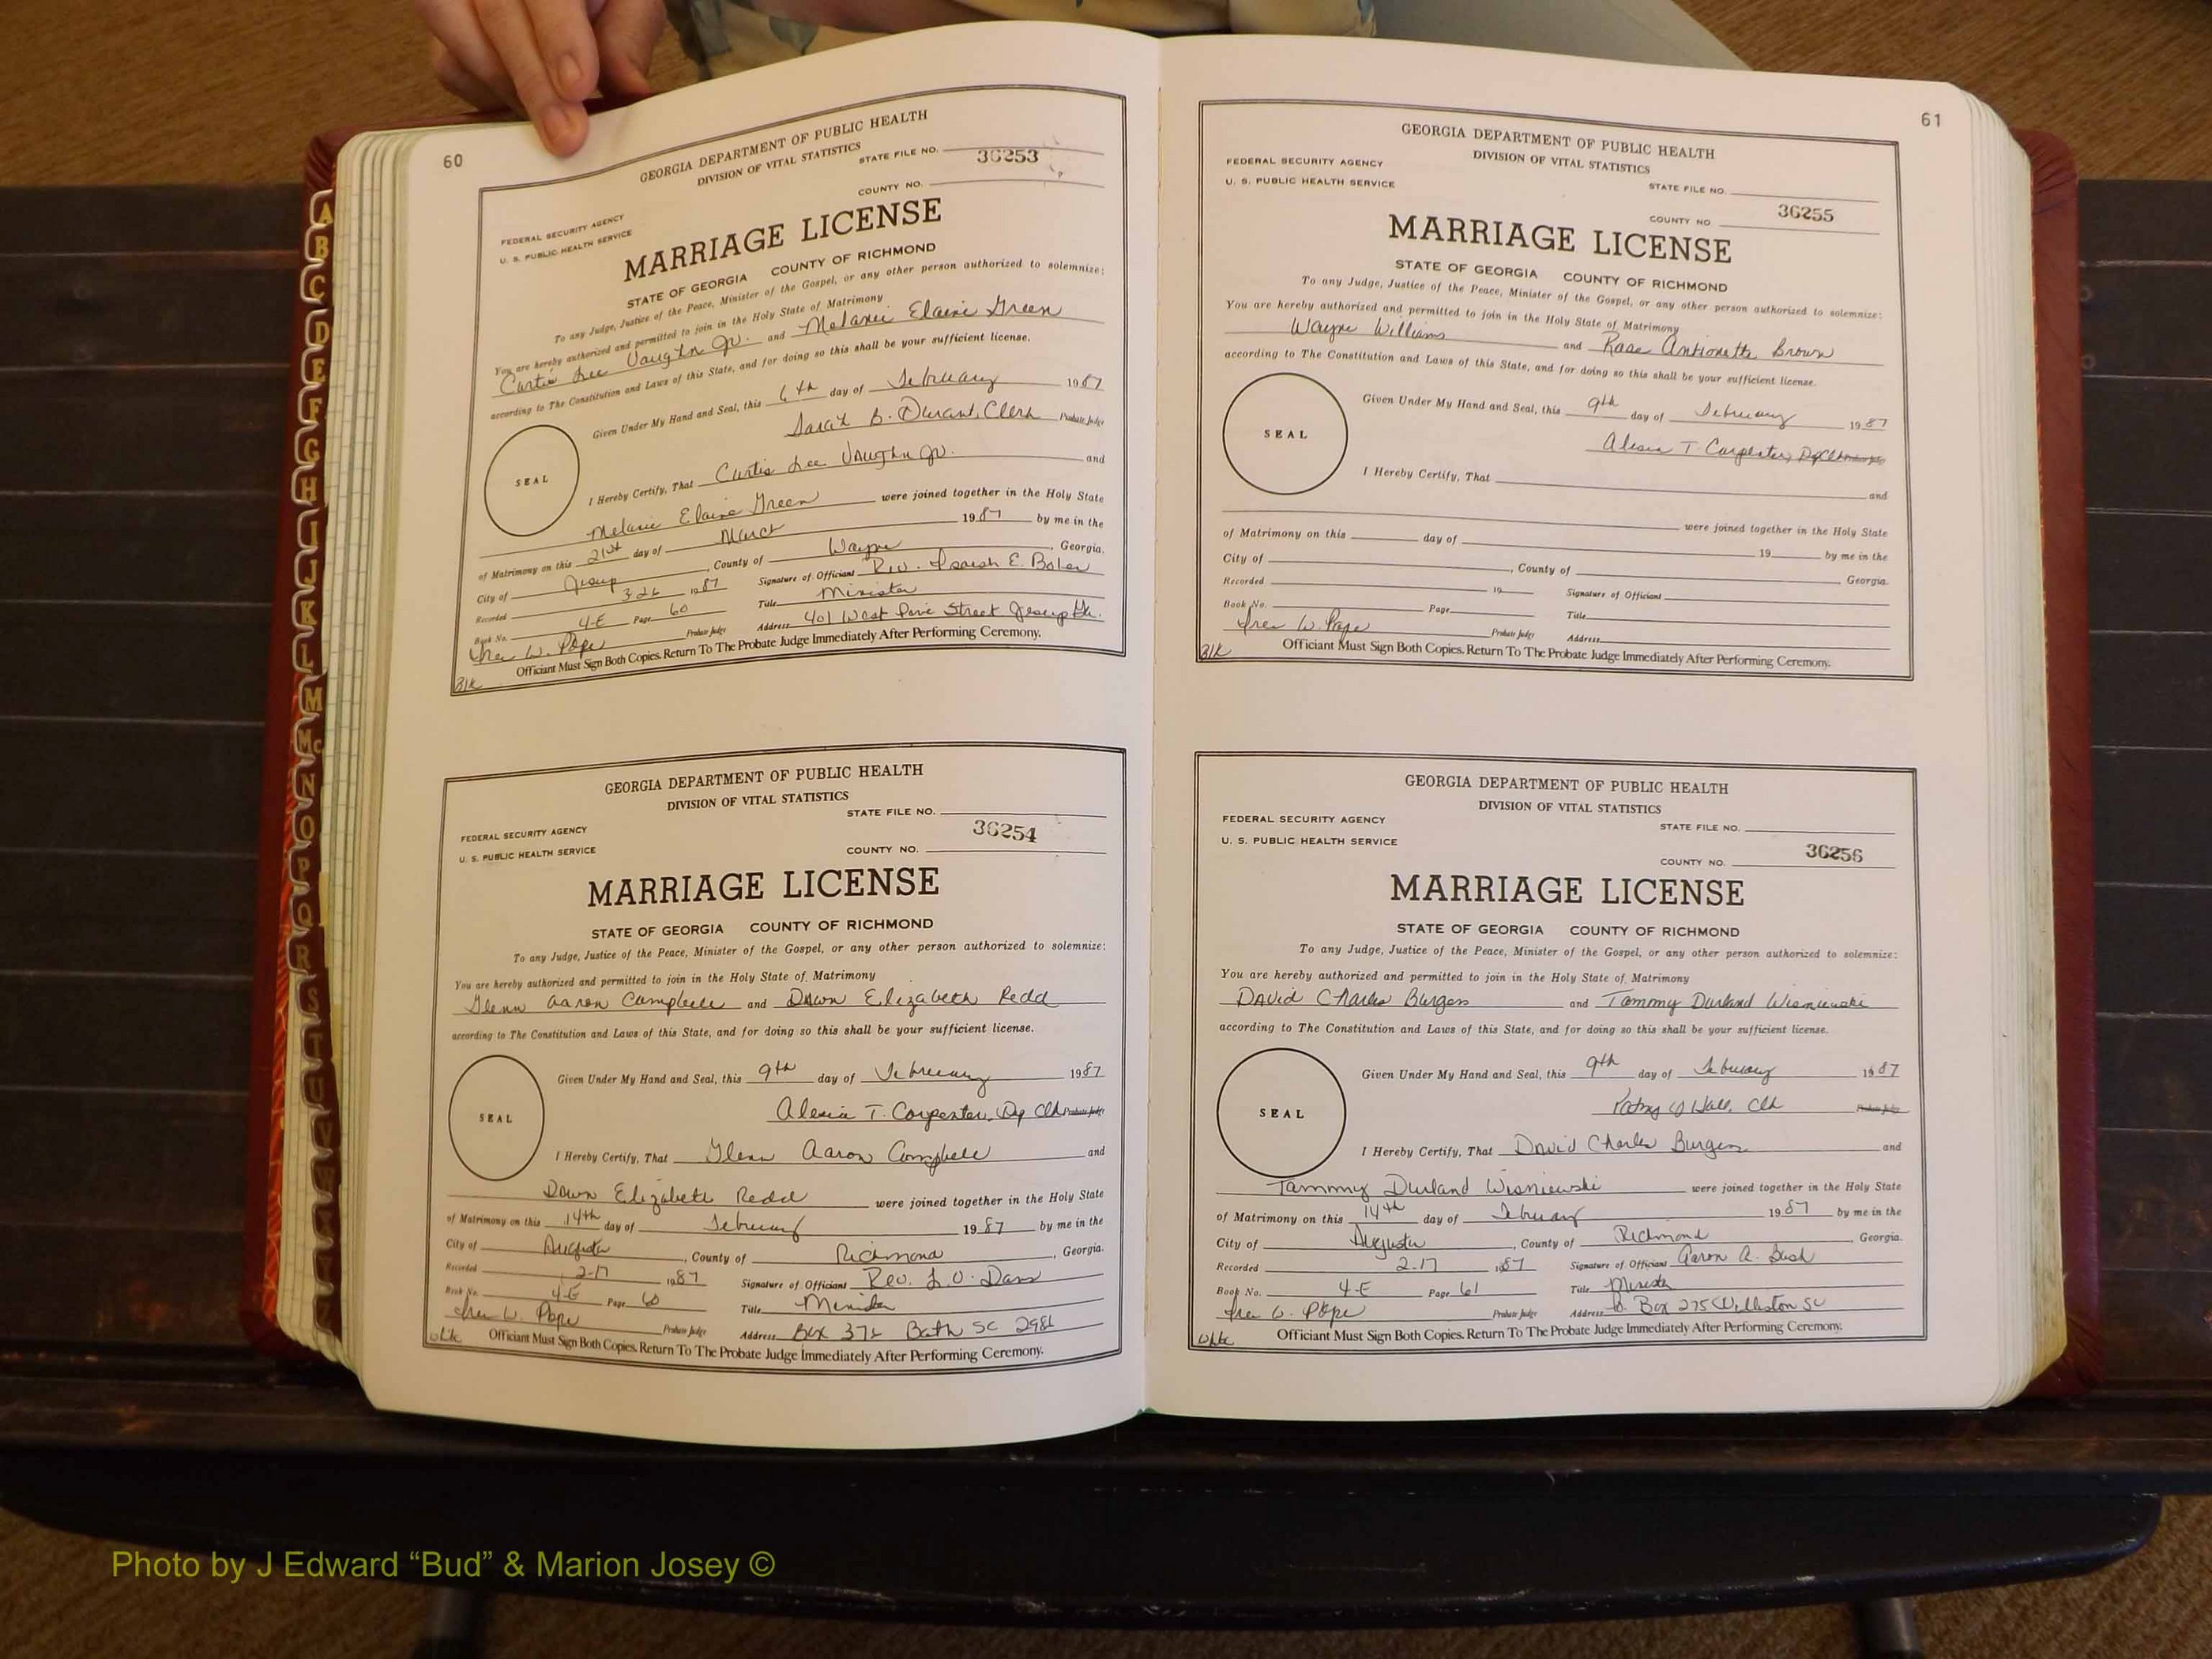 60
GEORGIA DEPARTMENT OF PUBLIC HEALTH
DIVISION OF VITAL STATISTICS
STATE FILE NO. 36253
COUNTY NO.
FEDERAL SECURITY AGENCY
U. S. PUBLIC HEALTH SERVICE
MARRIAGE LICENSE
STATE OF GEORGIA COUNTY OF RICHMOND
To any Judge, Justice of the Peace, Minister of the Gospel, or any other person authorized to solemnize:
You are hereby authorized and permitted to join in the Holy State of Matrimony
Curtis Lee Vaughn Jr. and Melanie Elaine Green
according to The Constitution and Laws of this State, and for doing so this shall be your sufficient license.
Given Under My Hand and Seal, this 6th day of February 1987
Sarah B. Durant, Clerk Probate Judge
SEAL
I Hereby Certify, That Curtis Lee Vaughn Jr. and
Melanie Elaine Green were joined together in the Holy State
of Matrimony on this 21st day of March 1987 by me in the
City of Jesup, County of Wayne, Georgia.
Recorded 3-26 1987 Signature of Officiant Rev. Isaiah E. Boler
Book No. 4-E Page 60 Title Minister
W. Pope Probate Judge Address 401 West Street Jesup Ga.
Officiant Must Sign Both Copies. Return To The Probate Judge Immediately After Performing Ceremony.
Blk
GEORGIA DEPARTMENT OF PUBLIC HEALTH
DIVISION OF VITAL STATISTICS
STATE FILE NO.
36254
FEDERAL SECURITY AGENCY
U. S. PUBLIC HEALTH SERVICE
COUNTY NO.
MARRIAGE LICENSE
STATE OF GEORGIA COUNTY OF RICHMOND
To any Judge, Justice of the Peace, Minister of the Gospel, or any other person authorized to solemnize:
You are hereby authorized and permitted to join in the Holy State of Matrimony
Glenn Aaron Campbell and Dawn Elizabeth Redd
according to The Constitution and Laws of this State, and for doing so this shall be your sufficient license.
Given Under My Hand and Seal, this 9th day of February 1987
Alexia T. Carpenter, Dp Clk Probate Judge
SEAL
I Hereby Certify, That Glenn Aaron Campbell and
Dawn Elizabeth Redd were joined together in the Holy State
of Matrimony on this 14th day of February 1987 by me in the
City of Augusta, County of Richmond, Georgia.
Recorded 2-17 1987 Signature of Officiant Rev. L.O.
Book No. 4-E Page 60 Title Minister
W. Pope Probate Judge Address Box 372 Bath SC
Officiant Must Sign Both Copies. Return To The Probate Judge Immediately After Performing Ceremony.
61
GEORGIA DEPARTMENT OF PUBLIC HEALTH
DIVISION OF VITAL STATISTICS
FEDERAL SECURITY AGENCY
U. S. PUBLIC HEALTH SERVICE
STATE FILE NO.
COUNTY NO 36255
MARRIAGE LICENSE
STATE OF GEORGIA COUNTY OF RICHMOND
To any Judge, Justice of the Peace, Minister of the Gospel, or any other person authorized to solemnize:
You are hereby authorized and permitted to join in the Holy State of Matrimony
Wayne Williams and Rose Antionette Brown
according to The Constitution and Laws of this State, and for doing so this shall be your sufficient license.
Given Under My Hand and Seal, this 9th day of February 1987
Alexia T. Carpenter, Dp Clk Probate Judge
SEAL
I Hereby Certify, That and
were joined together in the Holy State
of Matrimony on this day of 19 by me in the
City of , County of , Georgia.
Recorded 19 Signature of Officiant
Book No. Page Title
W. Pope Probate Judge Address
Officiant Must Sign Both Copies. Return To The Probate Judge Immediately After Performing Ceremony.
Blk
GEORGIA DEPARTMENT OF PUBLIC HEALTH
DIVISION OF VITAL STATISTICS
FEDERAL SECURITY AGENCY
U. S. PUBLIC HEALTH SERVICE
STATE FILE NO.
COUNTY NO. 36256
MARRIAGE LICENSE
STATE OF GEORGIA COUNTY OF RICHMOND
To any Judge, Justice of the Peace, Minister of the Gospel, or any other person authorized to solemnize:
You are hereby authorized and permitted to join in the Holy State of Matrimony
David Charles Burgess and Tammy Durland Wisniewski
according to The Constitution and Laws of this State, and for doing so this shall be your sufficient license.
Given Under My Hand and Seal, this 9th day of February 1987
Hall, Clk Probate Judge
SEAL
I Hereby Certify, That David Charles Burgess and
Tammy Durland Wisniewski were joined together in the Holy State
of Matrimony on this 14th day of February 1987 by me in the
City of Augusta, County of Richmond, Georgia.
Recorded 2-17 1987 Signature of Officiant Aaron A. Bush
Book No. 4-E Page 61 Title Minister
W. Pope Probate Judge Address Box 275 Williston SC
Officiant Must Sign Both Copies. Return To The Probate Judge Immediately After Performing Ceremony.
A
B
C
D
E
F
G
H
I
J
K
L
M
Mc
N
O
P
Q
R
S
T
U
V
Photo by J Edward “Bud” & Marion Josey ©